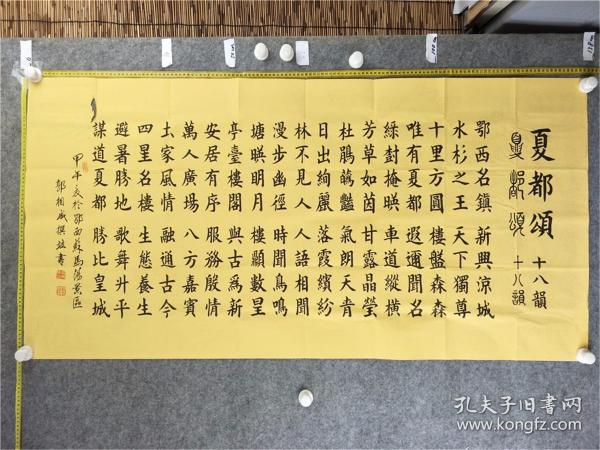 夏都頌 十八韻
夏都頌 十八韻
鄂西名鎮 新興涼城
水杉之王 天下獨尊
十里方圓 樓盤森森
唯有夏都 遐邇聞名
綠封掩映 車道縱橫
芳草如茵 甘露晶瑩
杜鵑鵲豔 氣朗天青
日出絢麗 落霞繽紛
林不見人 人語相聞
漫步幽徑 時聞鳥鳴
塘映明月 樓顯數星
亭臺樓閣 與古爲新
安居有序 服務殷情
萬人廣場 八方嘉賓
土家風情 融通古今
四星名樓 生態養生
避暑勝地 歌舞升平
謀道夏都 勝比皇城
甲午夏於鄂西蘇馬蕩景區
郭相成撰並書
孔夫子旧书网
kongfz.com